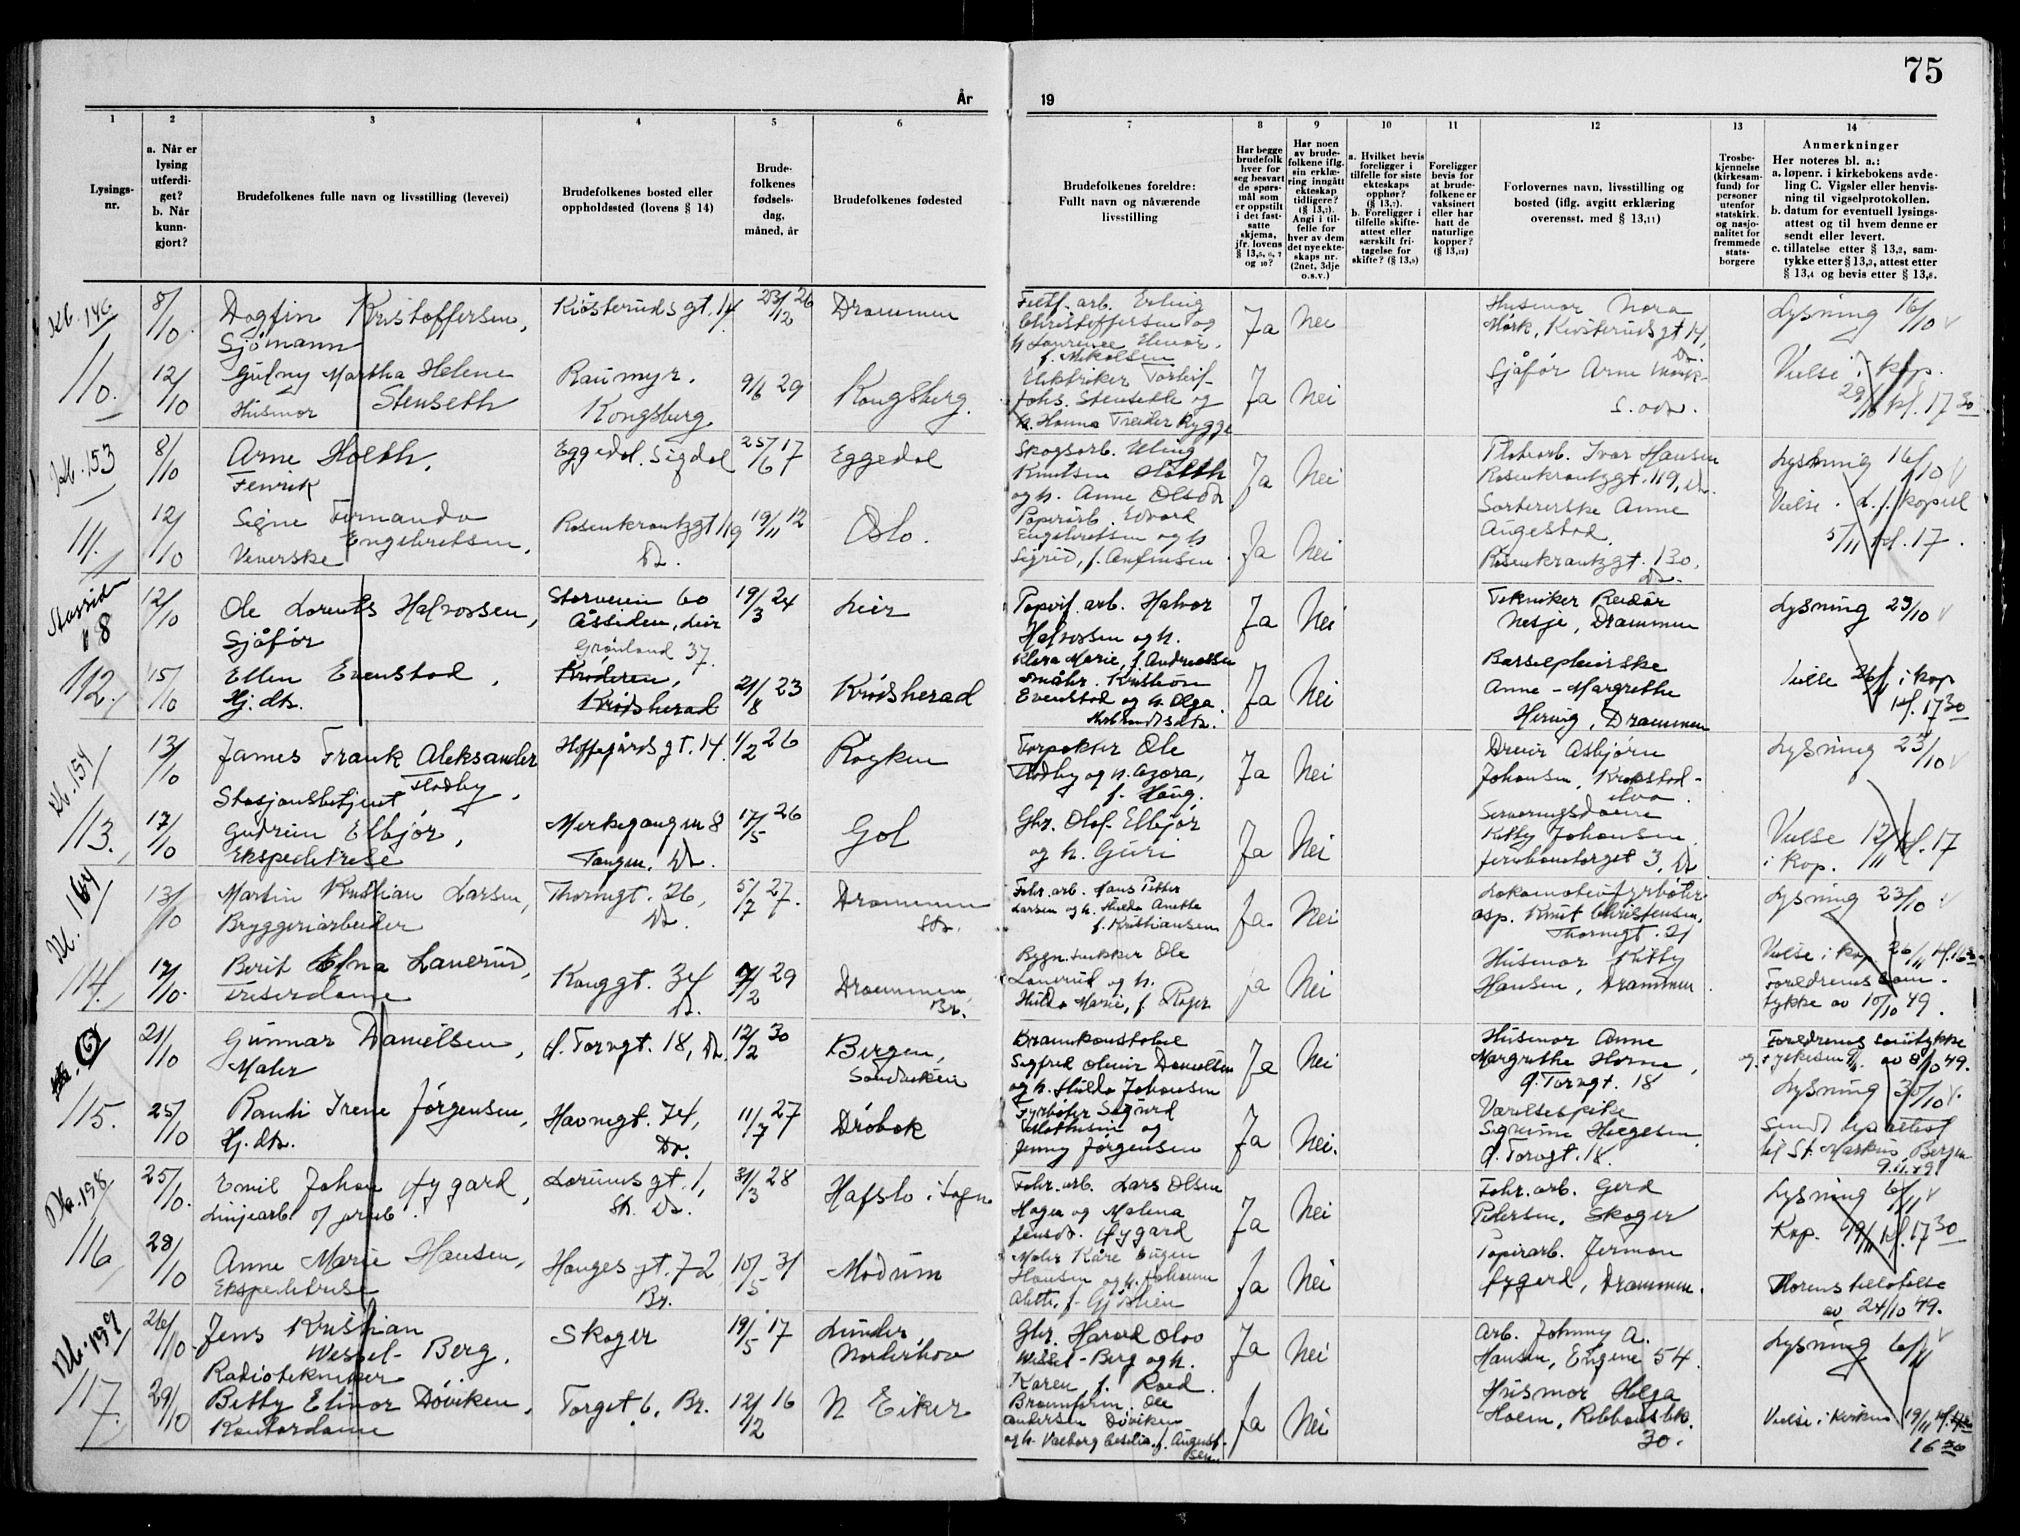 75
År
19
1
2
3
4
5
6
7
8
9
10
11
12
13
14
Lysings-
nr.
a. Når er
lysing
utferdi-
get?
b. Når
kunn-
gjort?
Brudefolkenes fulle navn og livsstilling (levevei)
Brudefolkenes bosted eller
oppholdssted (lovens § 14)
Brude-
folkenes
fødsels-
dag,
måned, år
Brudefolkenes fødested
Brudefolkenes foreldre:
Fullt navn og nåværende
livsstilling
Har begge
brudefolk
hver for
seg besvart
de spørs-
mål som
er oppstilt
i det fast-
satte
skjema,
jfr. lovens
§ 13,5, 6, 7
og 10?
Har noen
av brude-
folkene iflg.
sin erklæ-
ring inngått
ekteskap
tidligere?
(§ 13,7).
Angi i til-
felle for
hver av dem
det nye ekte-
skaps nr.
(2net, 3dje
o.s.v.)
a. Hvilket bevis
foreligger i
tilfelle for siste
ekteskaps
opphør?
(§ 13,7).
b. Foreligger i
tilfelle skifte-
attest eller
særskilt fri-
tagelse for
skifte? (§ 13,9)
Foreligger
bevis for
at brude-
folkene er
vaksinert
eller har
hatt de
naturlige
kopper?
(§ 13,12)
Forlovernes navn, livsstilling og
bosted (iflg. avgitt erklæring
overensst. med § 13,11)
Trosbe-
kjennelse
(kirkesam-
fund) for
personer
utenfor
statskirk.
og nasjo-
nalitet for
fremmede
stats-
borgere
Anmerkninger
Her noteres bl. a.:
a. løpenr. i kirkebokens avde-
ling C. Vigsler eller henvis-
ning til vigselprotokollen.
b. datum for eventuell lysings-
attest og til hvem denne er
sendt eller levert.
c. tillatelse etter § 13,2, sam-
tykke etter § 13,3, attest etter
§ 13,4 og bevis etter § 13,8.
146
110.
8/10
Dagfin Kristoffersen,
Sjømann
Kiøsteruds gt. 14
23/12 26
Drammen
Erling
Christoffersen og
f. Mikalsen
Ja
Nei
Husmor Nora
Mørk, Kiøsteruds gt 14,
Dr.
Lysning 16/10
12/10
Gudny Martha Helene
Husmor Stenseth
Raumyr.
Kongsberg
9/6 29
Kongsberg.
Elektriker Torleif
Johs. Stenseth og
h. Hanna Rygge
Ja
Nei
Sjåfør Arne Mørk
Vielse i kap.
29/10 kl. 17 30
153
111.
8/10
Arne Holth,
Fenrik
Eggedal. Sigdal
25/6 17
Eggedal
Skogsarb.
Knutsen Holth
og h. Anne Olsdtr
Ja
Nei
Ivar Hansen
Rosenkrantzgt. 119, Dr.
Lysning 16/10
12/10
Signe Fernanda
Engebretsen,
Veverske
Rosenkrantzgt 119
Dr.
19/11 12
Oslo.
Papirarb. Edvard
Engebretsen og h
Sigrid, f. Amundsen
Ja
Nei
Sorterske Anne
Augestad.
Rosenkrantzgt. 130,
Dr.
Vielse d. f. kapell
5/11 kl. 17.
8
112.
12/10
Ole Lorents Halvorsen,
Sjåfør
Storveien 60
Åssiden, Lier
19/3 24
Lier
Papirf. arb. Halvor
Halvorsen og h.
Klara Marie, f. Andreassen
Ja
Nei
Tekniker Reidar
Nesje, Drammen
Lysning 23/10
15/10
Ellen Evenstad,
Hj. dtr.
Grønland 37
Krøderen,
Krødsherad
21/8 23
Krødsherad
Småbr. Kristian
Evenstad og h. Olga
Ja
Nei
Barselpleierske
Anne-Margrethe
Hennig, Drammen
Vielse 26/11 i kap
kl. 17 30
154
113.
13/10
James Frank Aleksander
Flodby,
Stasjonsbetjent
Hoffsgårds gt. 14
1/2 26
Røyken
Forpakter Ole
Flodby og h. Agora,
f. Haug.
Ja
Nei
Dreier Asbjørn
Johansen, Krokstad-
elva
Lysning 23/10
17/10
Gudrun Elbjør,
Ekspeditrise
Merkegangen 8
Tangen, Dr.
17/5 26
Gol
Gbr. Olaf Elbjør
og h. Guri
Ja
Nei
Serveringsdame
Kitty Johansen
torget 3, Dr
Vielse 12/11 kl. 17
i Kap.
164
114.
13/10
Martin Kristian Larsen,
Bryggeriarbeider
Thornegt. 26,
Dr.
5/7 27.
Drammen
Fabr. arb. Hans Petter
Larsen og h. Hulda Anette
f. Kristiansen
Ja.
Nei
Lokomotivfyrbøter-
asp. Knut Christensen,
Thornegt. 21
Lysning 23/10
17/10.
Berit Edna Lanerud,
Friserdame
Konggt. 34
Dr.
7/2 29
Drammen,
Br.
Bygn. snekker Ole
Lanerud og h.
Hulda Marie, f. Roger
Ja
Nei
Husmor Kitty
Hansen, Drammen
Vielse i kap. 26/11 kl. 16
Foreldrenes sam-
tykke av 10/10 49.
115.
21/10
Gunnar Danielsen,
Maler
d. Torvgt. 18, Dr.
12/2 30
Bergen,
Sandviken
Brannkonstabel
Sigfred Oliver Danielsen
og h. Hulda Johansen
Ja
Nei
Husmor Anne
Margrethe Horne,
Torvgt. 18
Foreldrenes samtykke
av 8/10 49.
Lysning 30/10
25/10
Randi Irene Jørgensen,
Hj. dtr.
Havnegt. 74,
Dr.
11/7 27
Drøbak
Fyrbøter Sigurd
og
Jenny Jørgensen
Ja
Nei.
Værelsespike
Torvgt. 18.
til St. Markus, Bergen
9.11.49
198
116
25/10.
Emil Johan Fygard,
Linjearb.
Lorums gt. 1,
Str. Dr.
31/3 28
Hafslo i Sogn
Fabr. arb. Lars Olsen
Hagen og Malena
Fygard
Ja
Nei
Fabr. arb. Gerd
Petersen, Skoger
Lysning 6/11
Kap. 19/11 kl. 17 30
28/10
Anne Marie Hansen,
Ekspeditrise
Hauges gt. 72
Br.
10/5 31
Modum
Maler Kåre Eugen
Hansen og h. Johanne
Ja
Nei
Papirarb. Herman
Fygard, Drammen.
Morens tillatelse
av 24/10 49.
199
117.
26/10.
Jens Kristian
Wessel-Berg,
Radiotekniker
Skoger
19/5 17
Lunder,
Norderhov
Gbr. Harald Olav
Wessel-Berg og h.
Karen f. Roed.
Ja
Nei
Arb. Johnny A.
Hansen, Engene 54.
Lysning 6/11
29/10
Betty Elinor Døviken,
Kontordame
Torget 6, Br.
12/12 16
N Eiker
Brannform. Ole
Andersen Døviken
og h. Valborg Cecilie, f. August-
Ja
Nei
Husmor Helga
Holm,
30.
Vielse i kirken 19/11
16 30